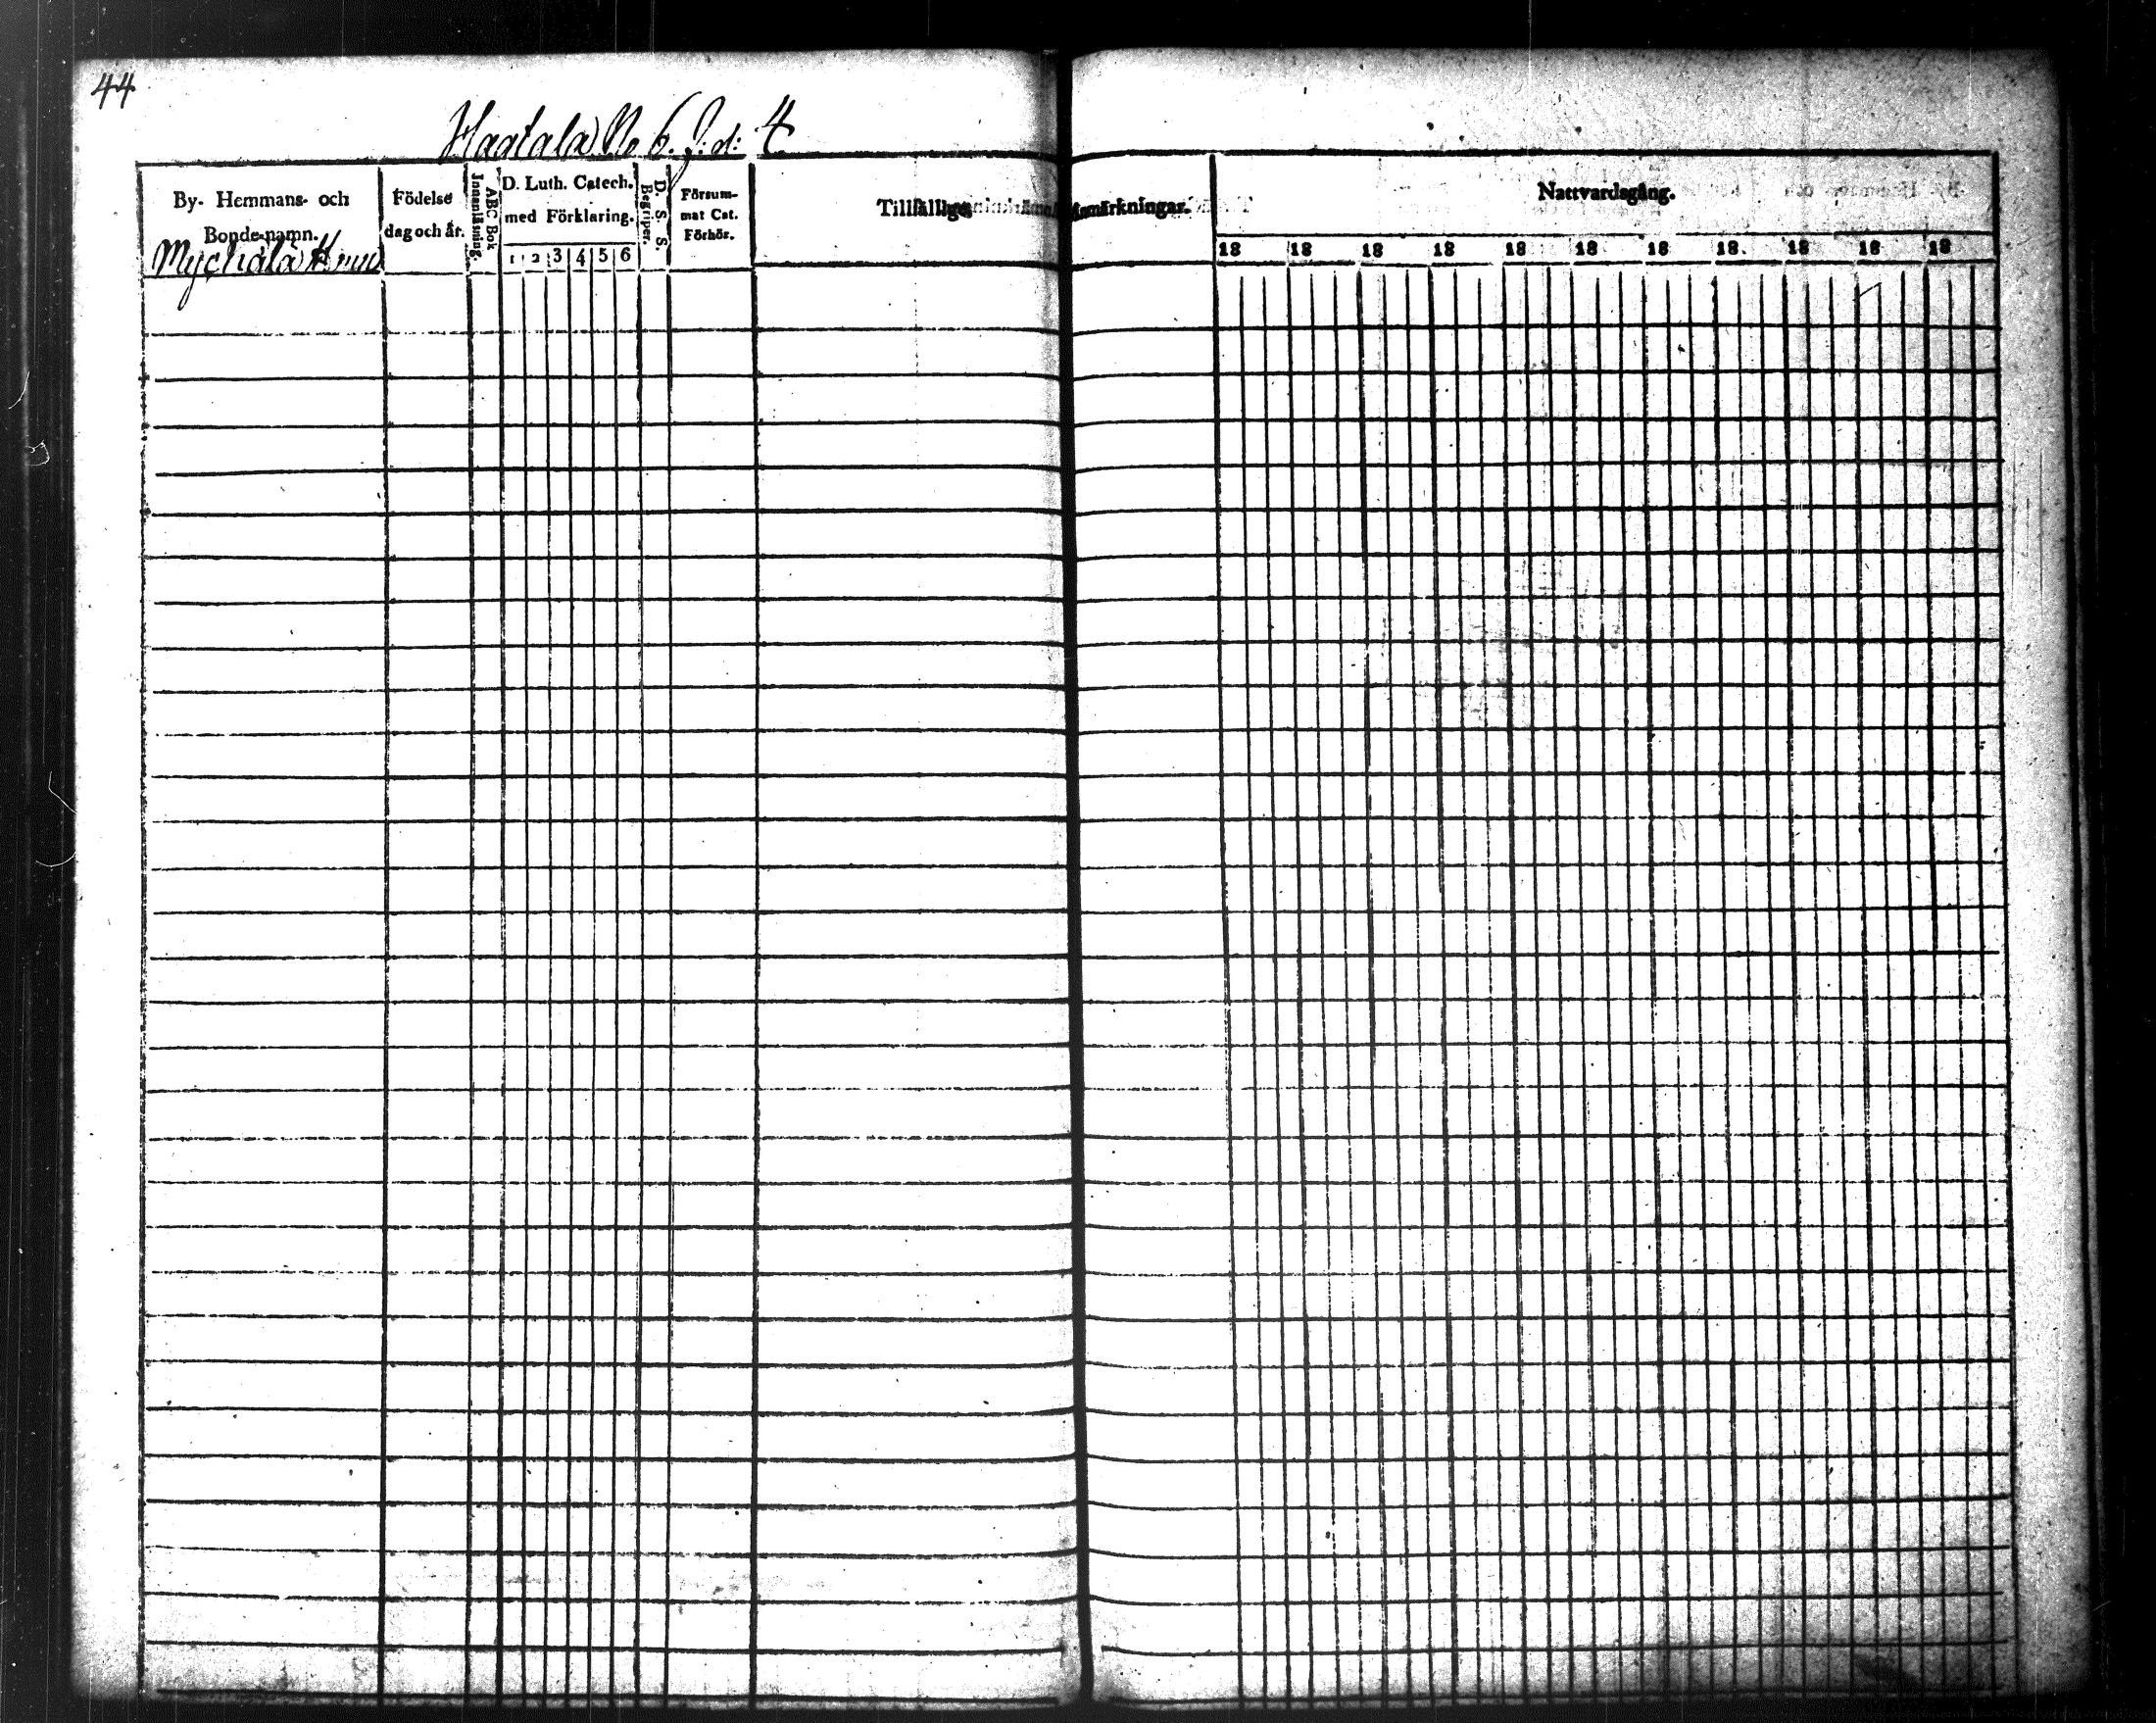 44
Haatala No 6. J: d: 4
By- Hemmans- och
Bonde-namn.
Födelse
dag och år.
ABC Bok
Innanläsning.
D. Luth. Catech.
med Förklaring.
1 2 3 4 5 6
D. S. S.
Begriper.
Försum-
mat Cat.
Förhör.
Tillfällige Anmärkningar.
Nattvardsgång.
18 18 18 18 18 18 18 18 18 18 18